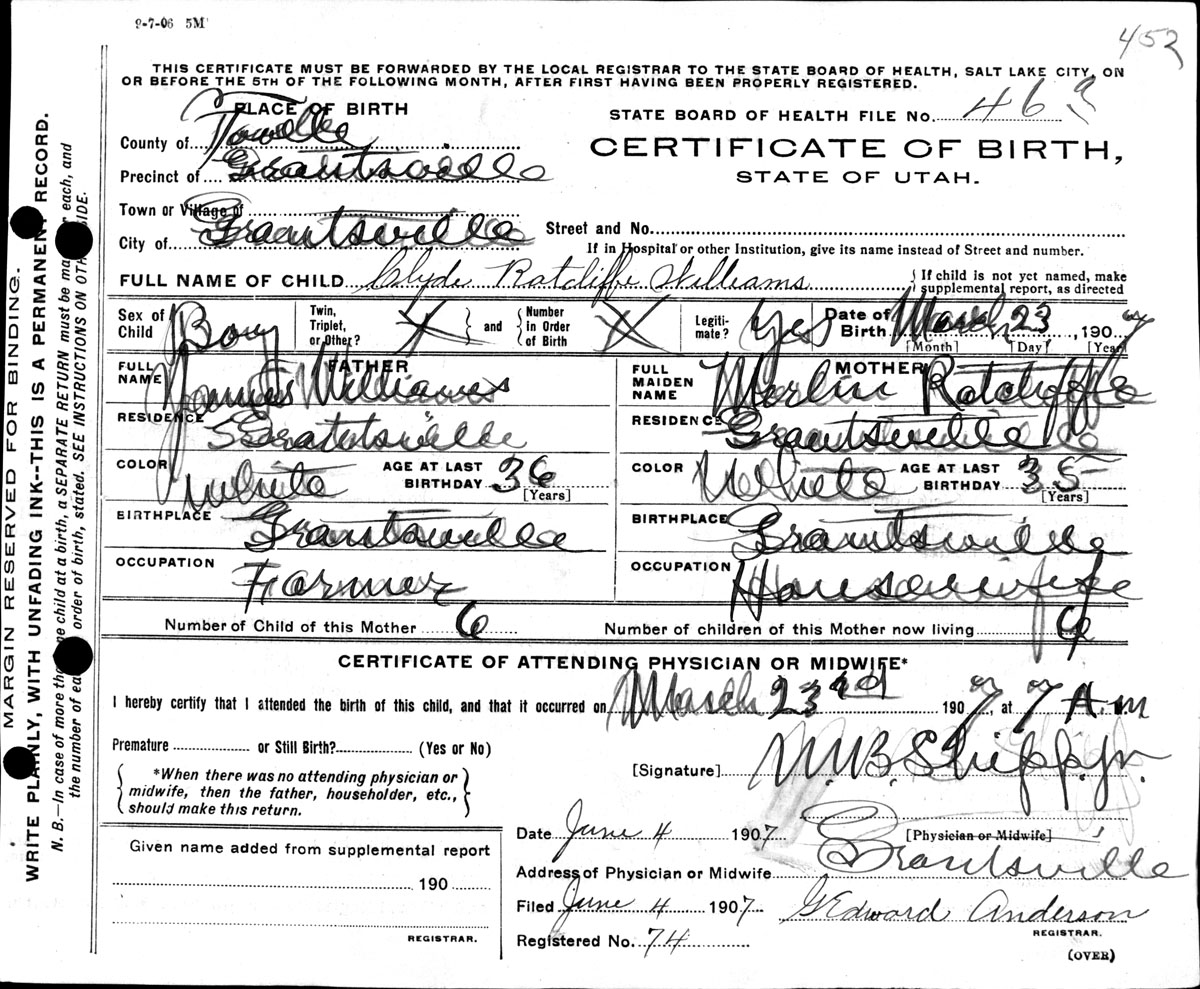 9-7-06 5M
452
THIS CERTIFICATE MUST BE FORWARDED BY THE LOCAL REGISTRAR TO THE STATE BOARD OF HEALTH, SALT LAKE CITY, ON
OR BEFORE THE 5TH OF THE FOLLOWING MONTH, AFTER FIRST HAVING BEEN PROPERLY REGISTERED.
PLACE OF BIRTH
STATE BOARD OF HEALTH FILE NO. 463
County of Tooelle
CERTIFICATE OF BIRTH,
Precinct of Grantsville
STATE OF UTAH.
Town or Village of
City of Grantsville
Street and No.
If in Hospital or other Institution, give its name instead of Street and number.
FULL NAME OF CHILD Clyde Ratcliffe Williams { If child is not yet named, make
supplemental report, as directed
Sex of Child Boy Twin, Triplet, or Other? X } and { Number in Order of Birth X Legiti-mate? Yes Date of Birth March 23, 1907
[Month] [Day] [Year]
FATHER
FULL NAME Williams
RESIDENCE Grantsville
COLOR White AGE AT LAST BIRTHDAY 36
[Years]
BIRTHPLACE Grantsville
OCCUPATION Farmer
MOTHER
FULL MAIDEN NAME Ratcliffe
RESIDENCE Grantsville
COLOR White AGE AT LAST BIRTHDAY 35
[Years]
BIRTHPLACE Grantsville
OCCUPATION Housewife
Number of Child of this Mother 6 Number of children of this Mother now living 6
CERTIFICATE OF ATTENDING PHYSICIAN OR MIDWIFE*
I hereby certify that I attended the birth of this child, and that it occurred on March 23rd 1907, at 7 A.m
Premature or Still Birth? (Yes or No)
[Signature] M. B. Shipp, Jr.
{ *When there was no attending physician or
midwife, then the father, householder, etc.,
should make this return. }
[Physician or Midwife]
Date June 4 1907
Address of Physician or Midwife Grantsville
Filed June 4 1907 G Edward Anderson
REGISTRAR.
Registered No. 74
(OVER)
Given name added from supplemental report
190
REGISTRAR.
MARGIN RESERVED FOR BINDING.
WRITE PLAINLY, WITH UNFADING INK--THIS IS A PERMANENT RECORD.
N. B.—In case of more than one child at a birth, a SEPARATE RETURN must be made for each, and
the number of each, in order of birth, stated. SEE INSTRUCTIONS ON OTHER SIDE.